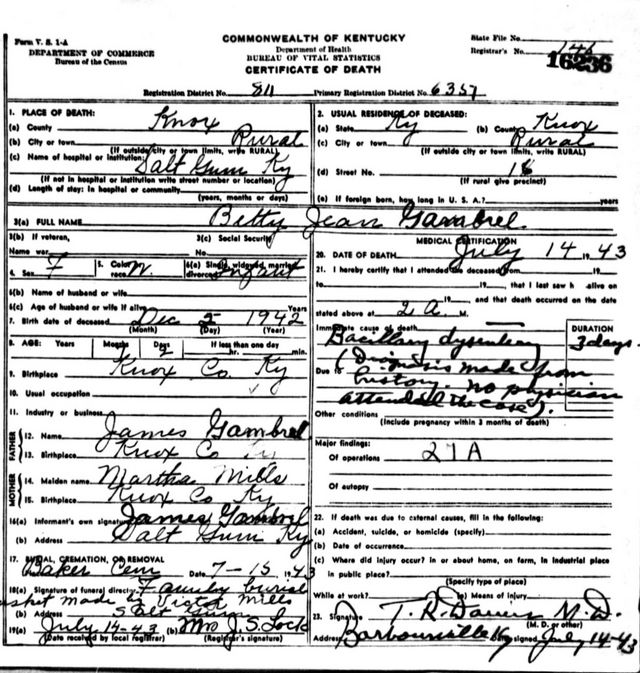 Form V. S. 1-A
DEPARTMENT OF COMMERCE
Bureau of the Census
COMMONWEALTH OF KENTUCKY
Department of Health
BUREAU OF VITAL STATISTICS
CERTIFICATE OF DEATH
State File No.
Registrar's No. 146
16236
Registration District No. 811 Primary Registration District No. 6357
1. PLACE OF DEATH:
(a) County Knox
(b) City or town Rural
(If outside city or town limits, write RURAL)
(c) Name of hospital or institution: Salt Gum Ky
(If not in hospital or institution write street number or location)
(d) Length of stay: In hospital or community
(years, months or days)
2. USUAL RESIDENCE OF DECEASED:
(a) State Ky (b) County Knox
(c) City or town Rural
(If outside city or town limits, write RURAL)
(d) Street No. 18
(If rural give precinct)
(e) If foreign born, how long in U. S. A.? years
3(a) FULL NAME Betty Jean Gambrel
3(b) If veteran,
Name war
3(c) Social Security
No.
4. Sex F 5. Color or race W 6(a) Single, widowed, married, divorced Infant
6(b) Name of husband or wife
6(c) Age of husband or wife if alive Years
7. Birth date of deceased Dec 5 1942
(Month) (Day) (Year)
8. AGE: Years Months Days If less than one day
hr. min.
9. Birthplace Knox Co. Ky
10. Usual occupation
11. Industry or business
FATHER
12. Name James Gambrel
13. Birthplace Knox Co Ky
MOTHER
14. Maiden name Martha Mills
15. Birthplace Knox Co Ky
16(a) Informant's own signature James Gambrel
(b) Address Salt Gum Ky
17. BURIAL, CREMATION, OR REMOVAL
Baker Cem Date 7-15 1943
18(a) Signature of funeral director Family burial
casket made by Victor Mills
(b) Address Salt Gum
19(a) July 14-43 (b) Mrs J. S. Lock
(Date received by local registrar) (Registrar's signature)
MEDICAL CERTIFICATION
20. DATE OF DEATH July 14 1943
21. I hereby certify that I attended the deceased from 19
to 19 , that I last saw h alive on
19 , and that death occurred on the date
stated above at 2 A M.
Immediate cause of death
Bacillary dysentery
DURATION
3 days
(Diagnosis made from
Due to history. No physician
attended the case).
Other conditions
(Include pregnancy within 3 months of death)
Major findings:
Of operations 27A
Of autopsy
22. If death was due to external causes, fill in the following:
(a) Accident, suicide, or homicide (specify)
(b) Date of occurrence
(c) Where did injury occur? in or about home, on farm, in industrial place
in public place?
(Specify type of place)
While at work? (e) Means of injury
23. Signature T. R. Davies M.D.
(M. D. or other)
Address Barbourville Ky Date signed July 14-43